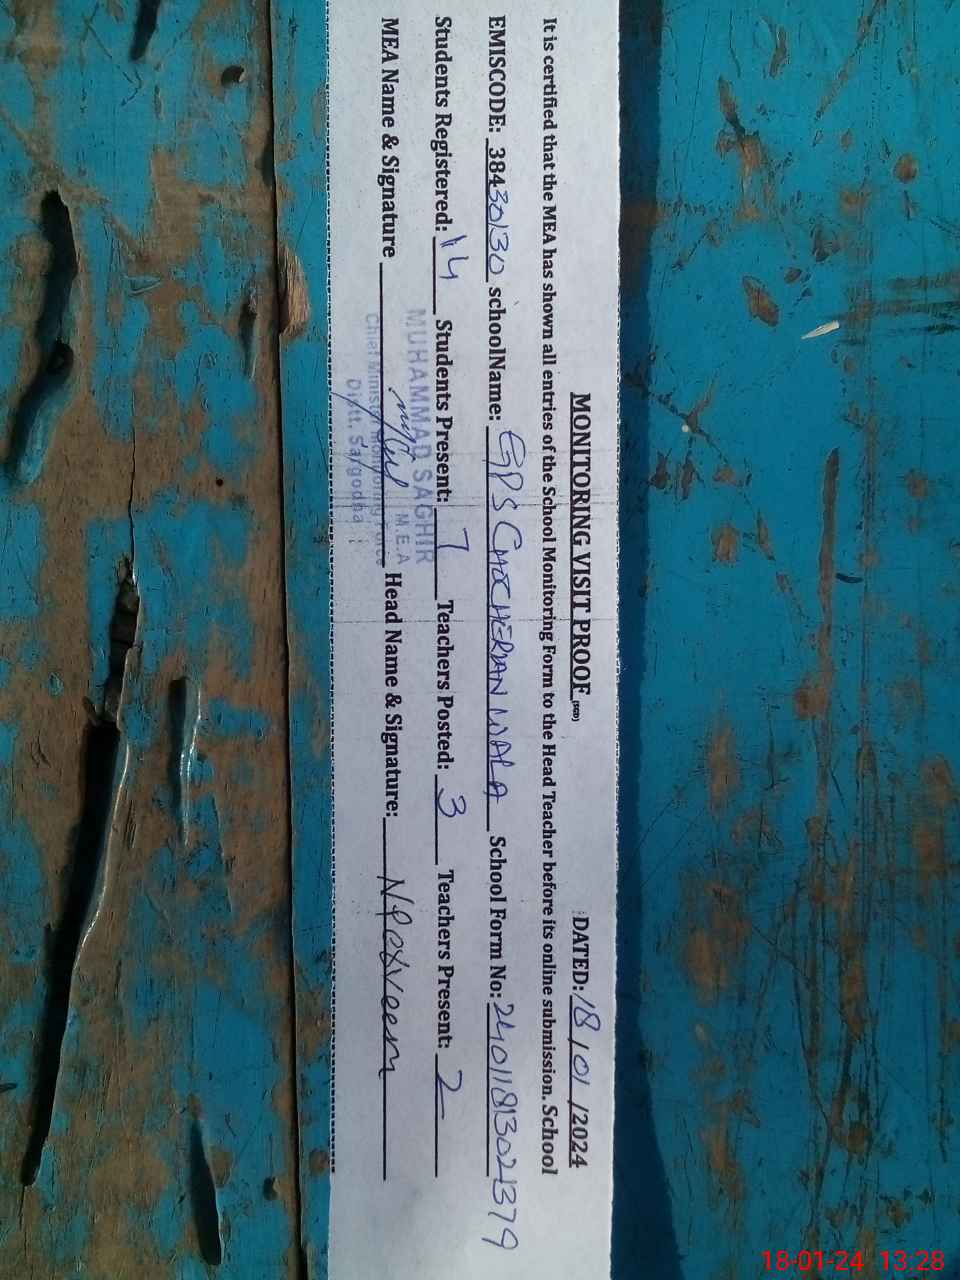 MONITORING VISIT PROOF (SED) DATED: 18/01/2024
It is certified that the MEA has shown all entries of the School Monitoring Form to the Head Teacher before its online submission. School
EMISCODE: 38430130 schoolName: GPS CHOCHERIAN WALA School Form No: 24011813021379
Students Registered: 14 Students Present: 7 Teachers Posted: 3 Teachers Present: 2
MEA Name & Signature Head Name & Signature: N Perveen
MUHAMMAD SAGHIR
M.E.A
Chief Minister Monitoring Force
Distt. Sargodha
18-01-24 13:28